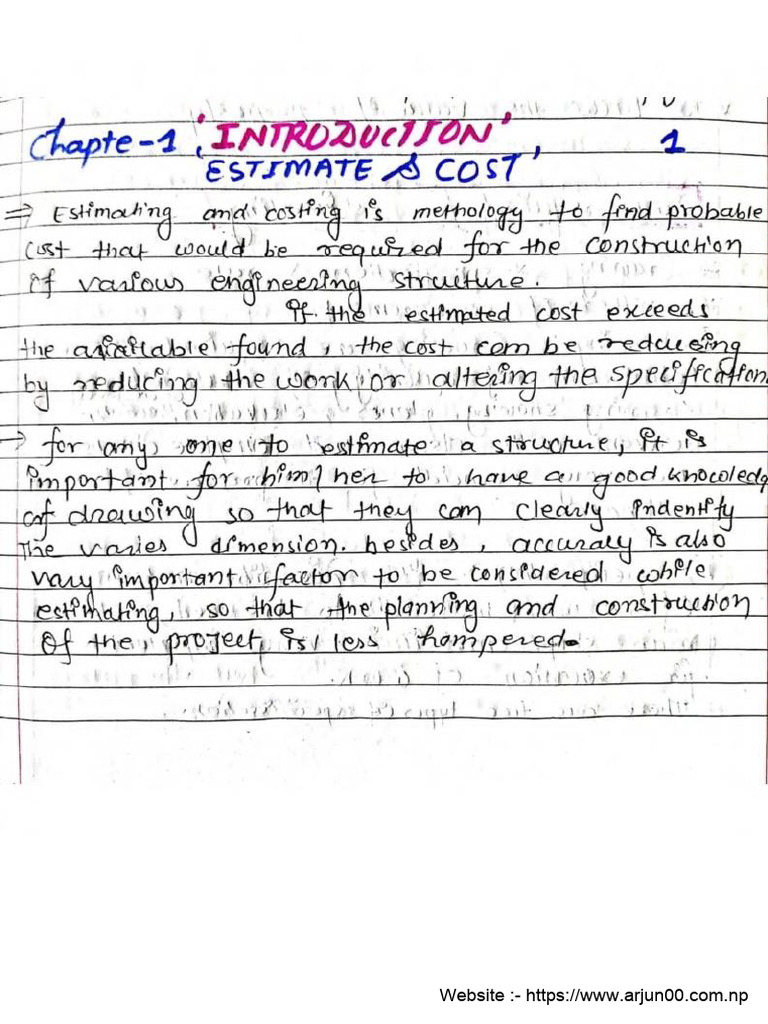 Chapte-1 'INTRODUCTION' 1
'ESTIMATE & COST'
⇒ Estimating and costing is methology to find probable
cost that would be required for the construction
of various engineering structure.
If the estimated cost exceeds
the available found, the cost can be reduceing
by reducing the work or altering the specification.
→ for any one to estimate a structure, it is
important for him/her to have a good knocoledg
of drawing so that they can clearly indentify
The varies dimension. besides, accuracy is also
vary important factor to be considered while
estimating, so that the planning and construction
Of the project is less hampered.
Website :- https://www.arjun00.com.np